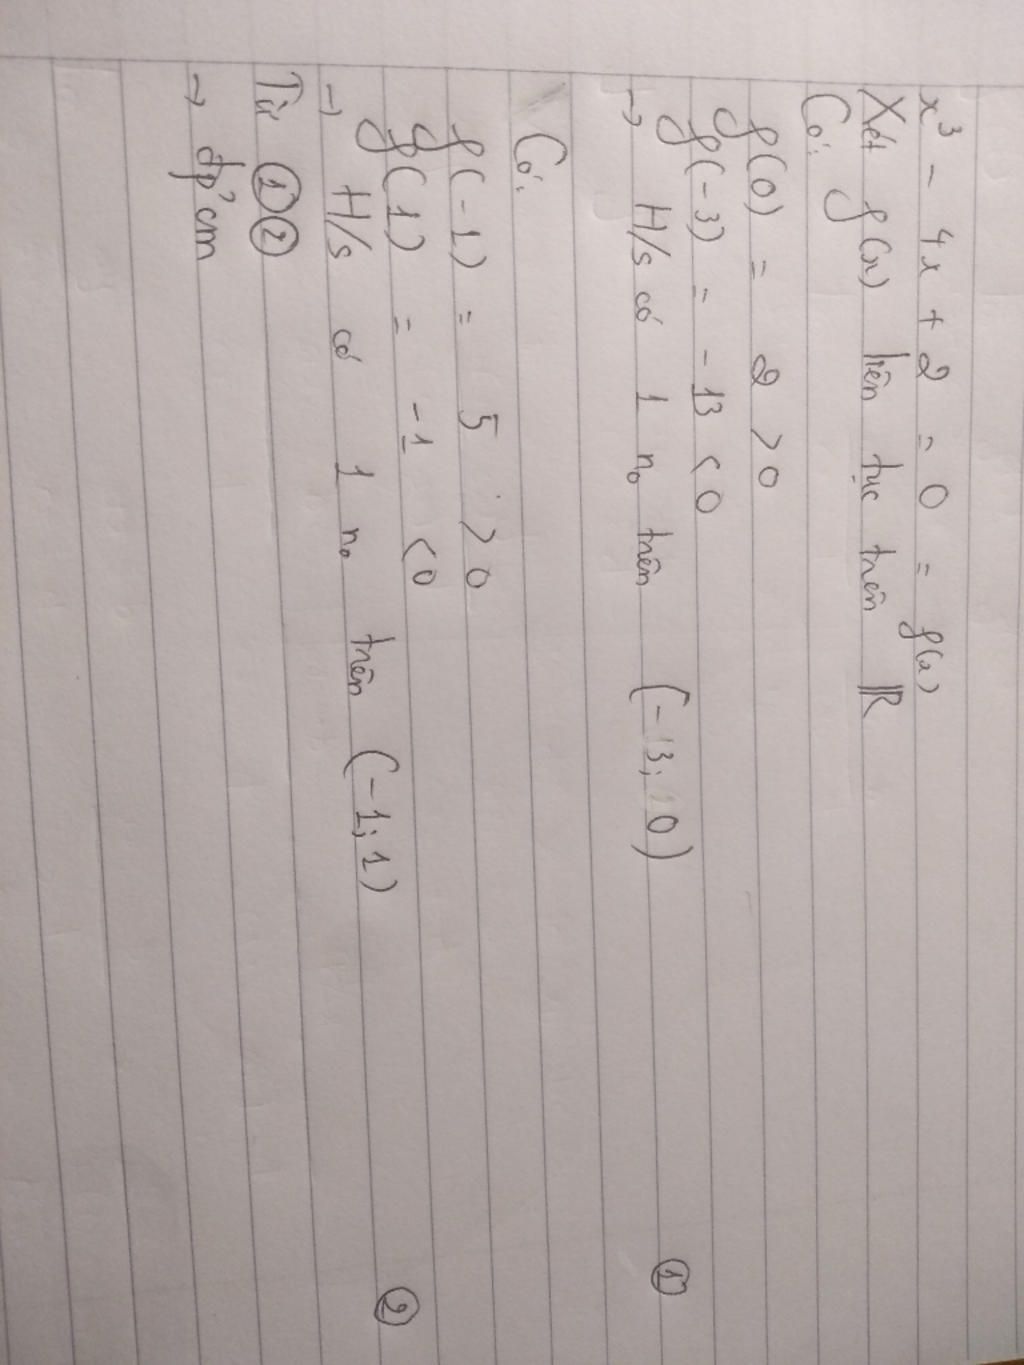 x³ - 4x + 2 = 0 = f(x)
Xét f(x) liên tục trên ℝ
Có:
f(0) = 2 > 0
f(-3) = -13 < 0
→ H/s có 1 n₀ trên (-13; 0) ①
Có:
f(-1) = 5 > 0
f(1) = -1 < 0
→ H/s có 1 n₀ trên (-1; 1) ②
Từ ①②
→ đpcm